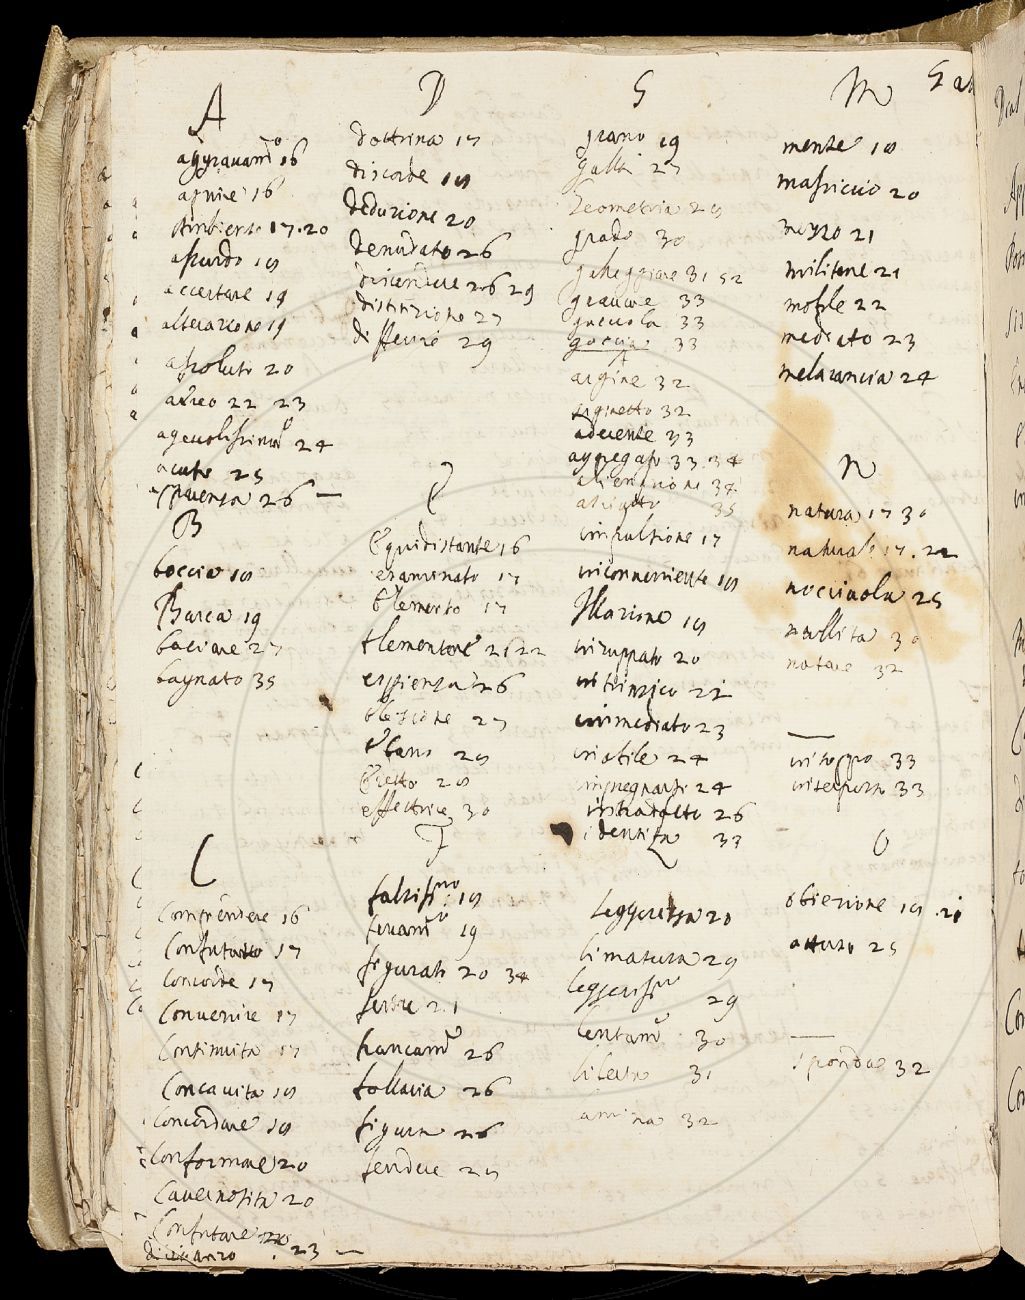 A
aggravam.o 16
aprire 16
Ambiente 17.20
assurdo 18
accertare 19
alterazione 19
assoluto 20
aereo 22 23
agevolissima 24
acuto 25
26 —
B
boccia 18
Barca 19
baciare 27
bagnato 35
C
Comprendere 16
Confutato 17
Concorde 17
Convenire 17
Continuità 17
Concavità 18
Concordare 18
Conformare 20
Cavernosità 20
Confutare
23 —
D
dottrina 17
discorde 18
deduzione 20
denudato 26
discendere 26 29
distinzione 27
differire 29
E
Equidistante 16
esaminato 17
Elemento 17
Elementare 21 22
esperienza 26
Elezione 27
Ebano 28
Eretto 28
effettrice 30
F
falsiss.mo 18
feram.o 19
figurato 20 34
ferire 21
francam.o 26
follaria 26
figura 26
fendere 28
G
grano 19
galla 27
Geometria 28
grado 30
galleggiare 31 32
gravare 33
gocciola 33
goccia 33
A
argine 32
arginetto 32
aderente 33
aggregato 33 34
34
35
impulsione 17
inconveniente 18
Illazione 18
inviluppato 20
intrinsico 22
immediato 23
inabile 24
impregnarsi 24
intradotto 26
identità 33
L
leggerezza 20
limatura 29
leggeriss.o 29
lentam.o 30
libera 31
32
M
Gal
mente 18
massiccio 20
mezzo 21
militare 21
mobile 22
mediato 23
melarancia 24
N
natura 17 30
naturale 17.22
nocciuola 25
nullità 30
natare 32
—
intoppo 33
interposto 33
O
obiezione 18.21
ottuso 25
—
sponda 32